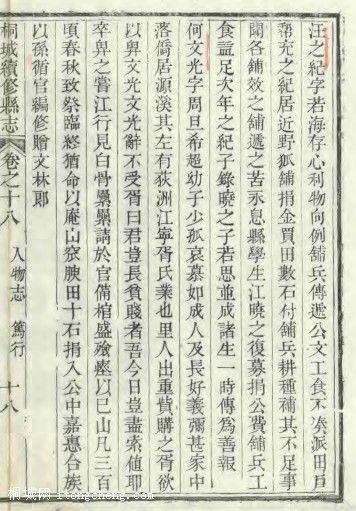 汪之紀字若海存心利物向例舖兵傳遞公文工食不湊派田戶
幫充之紀居近野狐舖捐金買田數石付舖兵耕種補其不足事
聞各舖效之舖遞之苦永息縣學生江曉之復募捐公費舖兵工
食益足次年之紀子錄曉之子若思並成諸生一時傳為善報
何文光字周旦希超幼子少孤哀慕如成人及長好義彌甚家中
落僑居源溪其左有荻洲江寧胥氏業也里人出重貲購之胥欲
以畀文光文光辭不受胥曰君豈長貧賤者吾今日豈盡索值耶
卒畀之嘗江行見白骨纍纍請於官備棺盛殮瘞以己山凡三百
頃春秋致祭臨終猶命以庵山窽腴田十石捐入公中嘉惠合族
以孫循官編修贈文林郎
桐城續修縣志 卷之十八 人物志 篤行 十八
桐城网 itongcheng.com